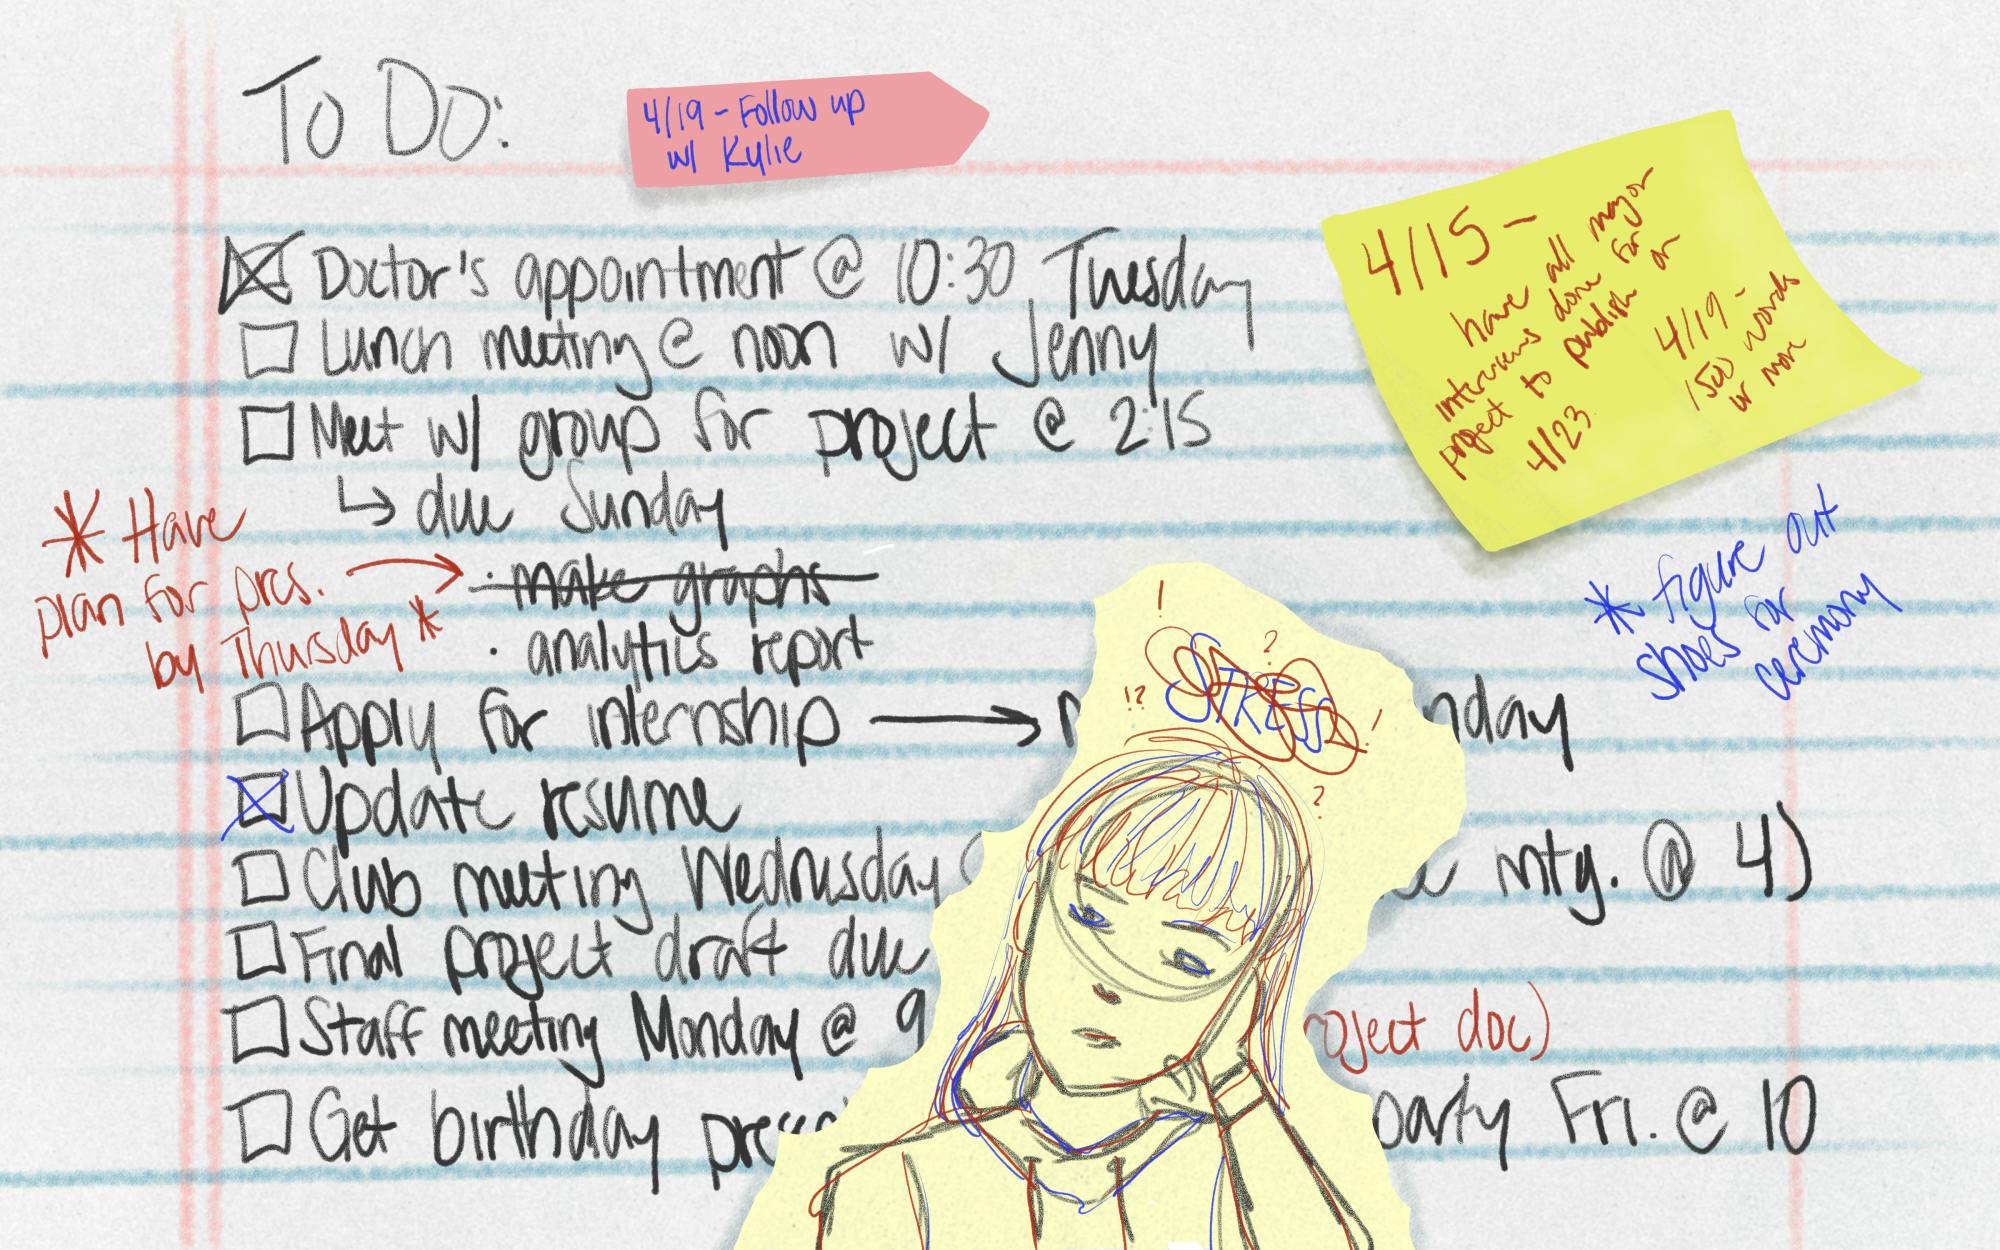 To Do:
4/19 - Follow up
w/ Kylie
4/15 -
have all major
interviews done for
project to publish on
4/23
4/19 -
1500 words
or more
Doctor's appointment @ 10:30 Tuesday
Lunch meeting @ noon w/ Jenny
Meet w/ group for project @ 2:15
↳ due Sunday
* Have
plan for pres. →
by Thursday *
· make graphs
· analytics report
* figure out
shoes for
ceremony
! ? STRESS !? ! ?
Apply for internship → nday
Update resume
Club meeting Wednesday mtg. @ 4)
Final project draft due
Staff meeting Monday @ 9 oject doc)
Get birthday prese party Fri. @ 10